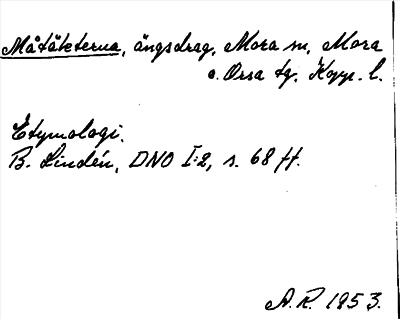 Måtäkterna, ängsdrag, Mora sn, Mora
o. Orsa tg. Kopp. l.
Etymologi.
B. Lindén, DNO I:2, s. 68 ff.
A.R. 1953.